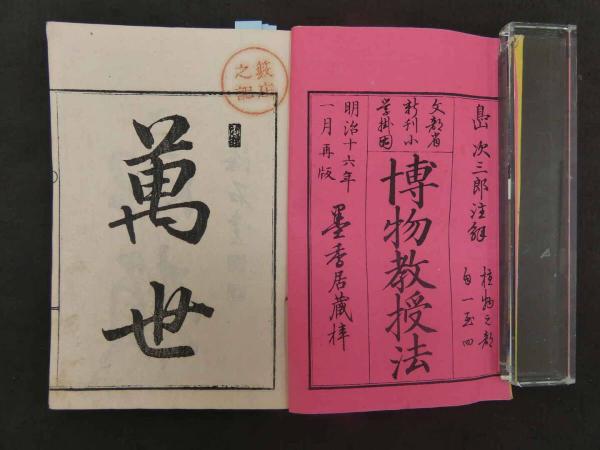 島次三郎注解
植物之部
自一至四
文部省
新刊小
学掛図
博物教授法
明治十六年
一月再版
墨香居蔵梓
萬世